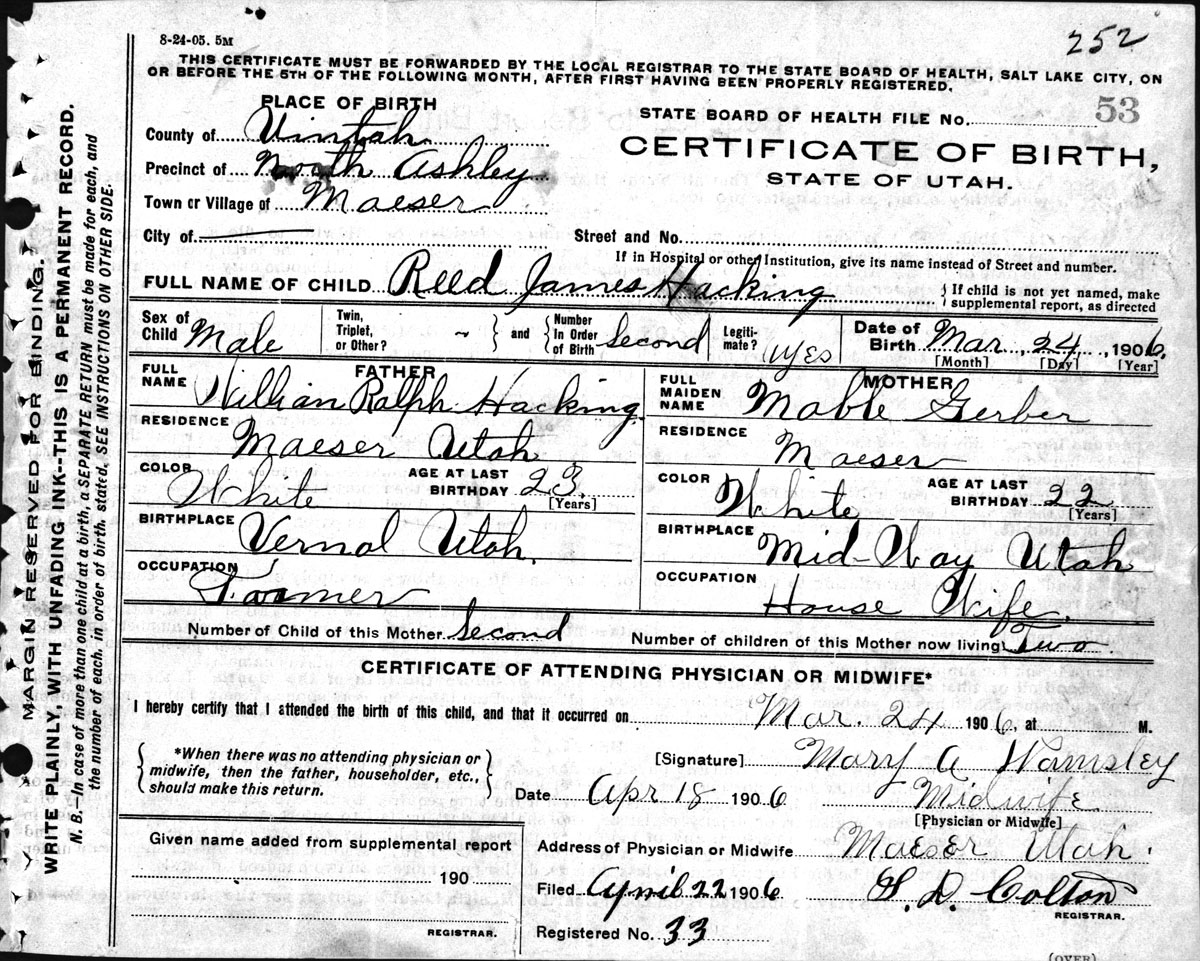 252
8-24-05. 5M
THIS CERTIFICATE MUST BE FORWARDED BY THE LOCAL REGISTRAR TO THE STATE BOARD OF HEALTH, SALT LAKE CITY, ON
OR BEFORE THE 5TH OF THE FOLLOWING MONTH, AFTER FIRST HAVING BEEN PROPERLY REGISTERED.
MARGIN RESERVED FOR BINDING.
WRITE PLAINLY, WITH UNFADING INK--THIS IS A PERMANENT RECORD.
N. B.--In case of more than one child at a birth, a SEPARATE RETURN must be made for each, and
the number of each, in order of birth, stated, SEE INSTRUCTIONS ON OTHER SIDE.
PLACE OF BIRTH
County of Uintah
Precinct of North Ashley
Town or Village of Maeser
City of
STATE BOARD OF HEALTH FILE NO. 53
CERTIFICATE OF BIRTH,
STATE OF UTAH.
Street and No.
If in Hospital or other Institution, give its name instead of Street and number.
FULL NAME OF CHILD Reed James Hacking { If child is not yet named, make
supplemental report, as directed
Sex of Child Male
Twin, Triplet, or Other? ~ } and { Number In Order of Birth Second
Legitimate? yes
Date of Birth Mar, 24, 1906.
[Month] [Day] [Year]
FATHER
FULL NAME William Ralph Hacking
RESIDENCE Maeser Utah
COLOR White AGE AT LAST BIRTHDAY 23.
[Years]
BIRTHPLACE Vernal Utah.
OCCUPATION Farmer
MOTHER
FULL MAIDEN NAME Mable Gerber
RESIDENCE Maeser
COLOR White AGE AT LAST BIRTHDAY 22
[Years]
BIRTHPLACE Mid-Way Utah
OCCUPATION House Wife
Number of Child of this Mother Second Number of children of this Mother now living Two.
CERTIFICATE OF ATTENDING PHYSICIAN OR MIDWIFE*
I hereby certify that I attended the birth of this child, and that it occurred on Mar. 24 1906, at M.
{ *When there was no attending physician or
midwife, then the father, householder, etc.,
should make this return. }
[Signature] Mary A Wamsley
Date Apr 18 1906 Midwife
[Physician or Midwife]
Given name added from supplemental report
190
REGISTRAR.
Address of Physician or Midwife Maeser Utah.
Filed April 22 1906 S. D. Colton
REGISTRAR.
Registered No. 33
(OVER)